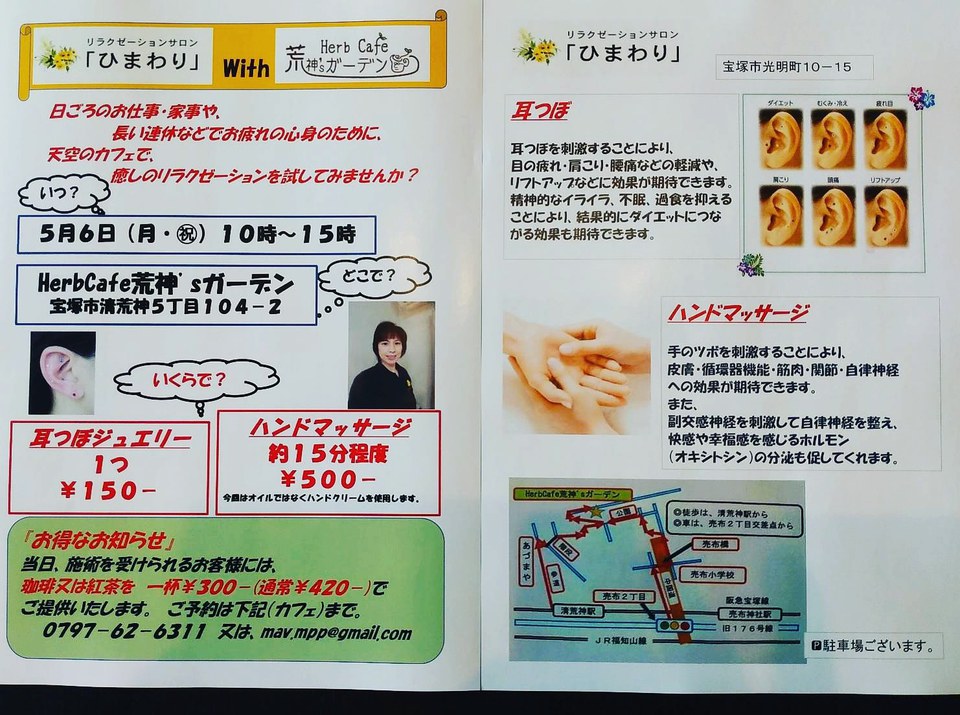 リラクゼーションサロン
「ひまわり」
With
Herb Cafe
荒神'sガーデン
日ごろのお仕事・家事や、
長い連休などでお疲れの心身のために、
天空のカフェで、
癒しのリラクゼーションを試してみませんか？
いつ？
5月6日（月・㊗）10時～15時
HerbCafe荒神'sガーデン
宝塚市清荒神5丁目104－2
どこで？
いくらで？
耳つぼジュエリー
1つ
￥150－
ハンドマッサージ
約15分程度
￥500－
今回はオイルではなくハンドクリームを使用します。
「お得なお知らせ」
当日、施術を受けられるお客様には、
珈琲又は紅茶を 一杯￥300－(通常￥420－)で
ご提供いたします。 ご予約は下記(カフェ)まで。
0797-62-6311 又は、mav.mpp@gmail.com
リラクゼーションサロン
「ひまわり」
宝塚市光明町10－15
耳つぼ
耳つぼを刺激することにより、
目の疲れ・肩こり・腰痛などの軽減や、
リフトアップなどに効果が期待できます。
精神的なイライラ、不眠、過食を抑える
ことにより、結果的にダイエットにつな
がる効果も期待できます。
ダイエット
むくみ・冷え
疲れ目
肩こり
頭痛
リフトアップ
ハンドマッサージ
手のツボを刺激することにより、
皮膚・循環器機能・筋肉・関節・自律神経
への効果が期待できます。
また、
副交感神経を刺激して自律神経を整え、
快感や幸福感を感じるホルモン
（オキシトシン）の分泌も促してくれます。
HerbCafe荒神'sガーデン
◎徒歩は、清荒神駅から
◎車は、売布2丁目交差点から
公園
階段
あづまや
参道
売布橋
中国道
売布小学校
売布2丁目
清荒神駅
阪急宝塚線
売布神社駅
旧176号線
JR福知山線
P駐車場ございます。